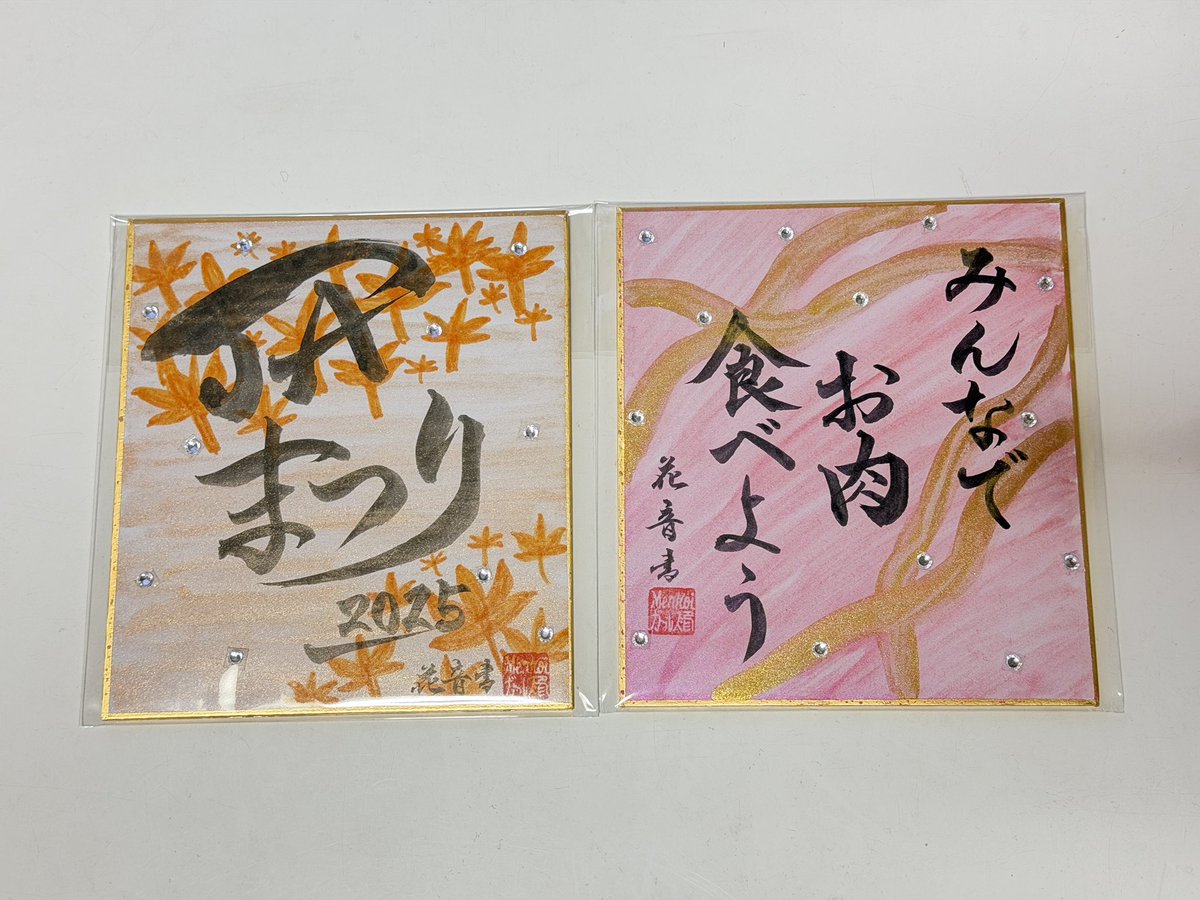 JA
まつり
2025
花音書
MenKoi
みんなで
お肉
食べよう
花音書
MenKoi